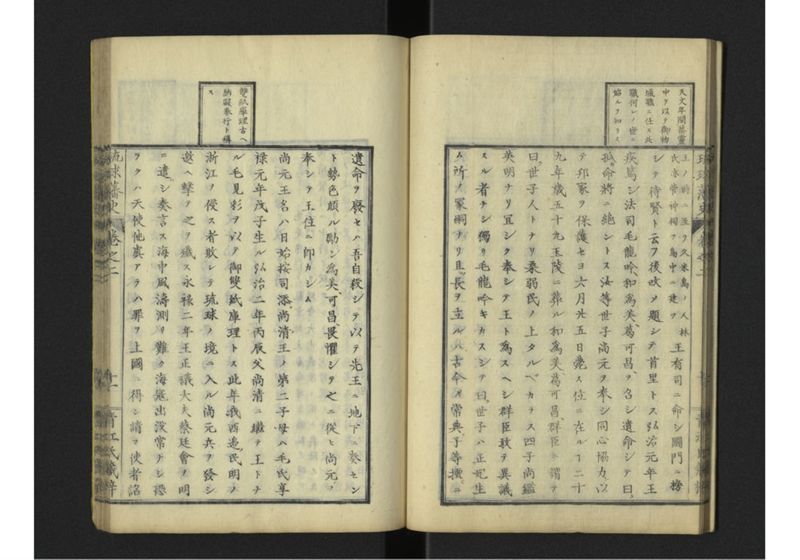 天文年間苗靈
中ヲ以テ御物
城職ニ任ス此
職何レノ世ニ
始ルヲ知ラス
王ノ時ニ至リ久米島ノ人林
氏亦常神祠ヲ島中ニ建ツ
王有司ニ命シ國門ニ榜
シテ待賢ト云フ後改メ題シテ首里トス弘治元年王
疾篤シ法司毛龍唫和為美葛可昌ヲ名シ遺命シテ曰
孤命將ニ絶ントス汝等世子尚元ヲ奉シ同心協力以
テ邦家ヲ保護セヨ六月廿五日薨ス位ニ在ル二十
九年歳五十九王陵ニ葬ル和為美葛可昌群臣ニ謂テ
曰世子人トナリ柔弱民ノ上タルベカラス四子尚鑑
英明ナリ宜シク奉シテ王ト為スヘシ群臣敢テ異議
スル者ナシ獨リ毛龍唫キカスシテ曰世子ハ正妃生
ム所ノ冢嗣ナリ且長ヲ立ルハ古今ノ常典子等擅ニ
雙紙庫理古ヘ
納殿奉行ト稱
ス
遺命ヲ廢セハ吾自殺シテ以テ先王ニ地下ニ奏セン
ト勢色頗ル勵シ為美可昌畏懼シ之ニ從ヒ尚元ヲ
奉シテ王位ニ即カシム
尚元王名ハ日始按司添尚清王ノ第二子母ハ毛氏享
禄元年戊子生ル弘治二年丙辰父尚清ニ繼テ王トナ
ル毛見彩ヲ以テ御雙紙庫理トス此年我西邊民明ノ
浙江ヲ侵ス者敗シテ琉球ノ境ニ入ル尚元兵ヲ發シ
邀ヘ撃テ之ヲ殲ス永禄二年王正議大夫蔡廷會ヲ明
ニ遣シ奏言ス海中風濤測リ難ク海寇出没常ナシ恐
ラクハ天使他虞アラハ罪ヲ上國ニ得ン請フ使者詔
琉球藩史 卷之二
十一
青江氏藏梓